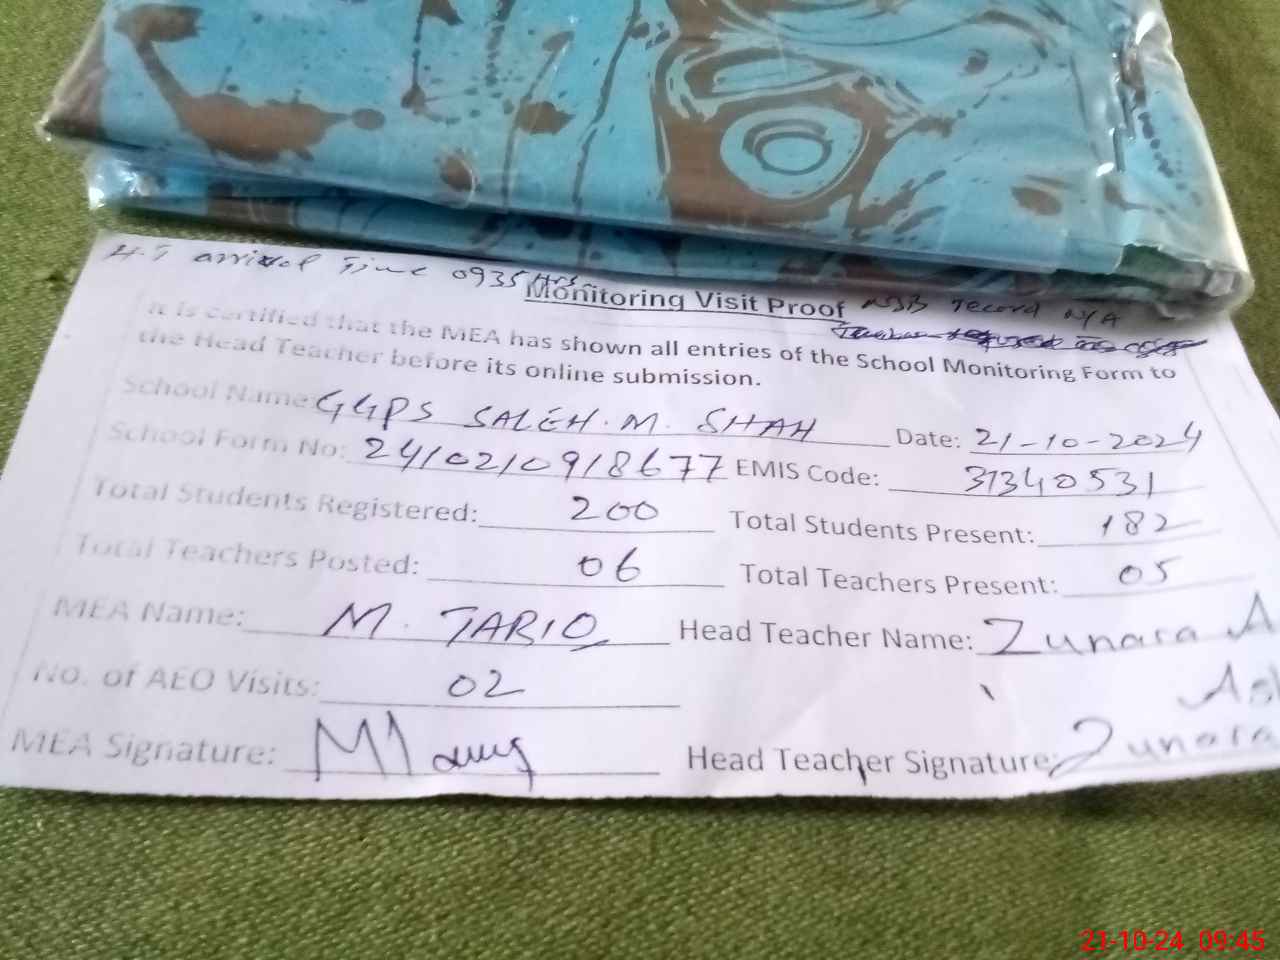 H.T arrival Time 0935 Hrs
Monitoring Visit Proof NSB record N/A
It is certified that the MEA has shown all entries of the School Monitoring Form to
the Head Teacher before its online submission.
School Name: GGPS SALEH.M. SHAH Date: 21-10-2024
School Form No: 2410210918677 EMIS Code: 31340531
Total Students Registered: 200 Total Students Present: 182
Total Teachers Posted: 06 Total Teachers Present: 05
MEA Name: M. TARIQ Head Teacher Name: Zunara A
No. of AEO Visits: 02
MEA Signature: Head Teacher Signature: Zunara
21-10-24 09:45